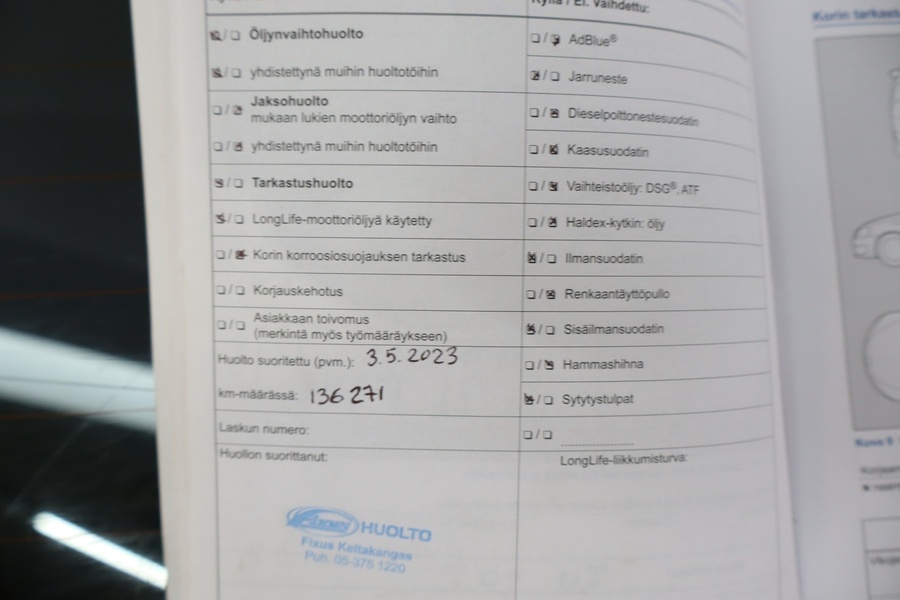 Kyllä / Ei. Vaihdettu:
Öljynvaihtohuolto
yhdistettynä muihin huoltotöihin
Jaksohuolto
mukaan lukien moottoriöljyn vaihto
yhdistettynä muihin huoltotöihin
Tarkastushuolto
LongLife-moottoriöljyä käytetty
Korin korroosiosuojauksen tarkastus
Korjauskehotus
Asiakkaan toivomus
(merkintä myös työmääräykseen)
Huolto suoritettu (pvm.): 3.5.2023
km-määrässä: 136 271
Laskun numero:
Huollon suorittanut:
Fixus HUOLTO
Fixus Keltakangas
Puh. 05-375 1220
AdBlue®
Jarruneste
Dieselpolttonestesuodatin
Kaasusuodatin
Vaihteistoöljy: DSG®, ATF
Haldex-kytkin: öljy
Ilmansuodatin
Renkaantäyttöpullo
Sisäilmansuodatin
Hammashihna
Sytytystulpat
LongLife-liikkumisturva:
Korin tarkast
Kuva 8